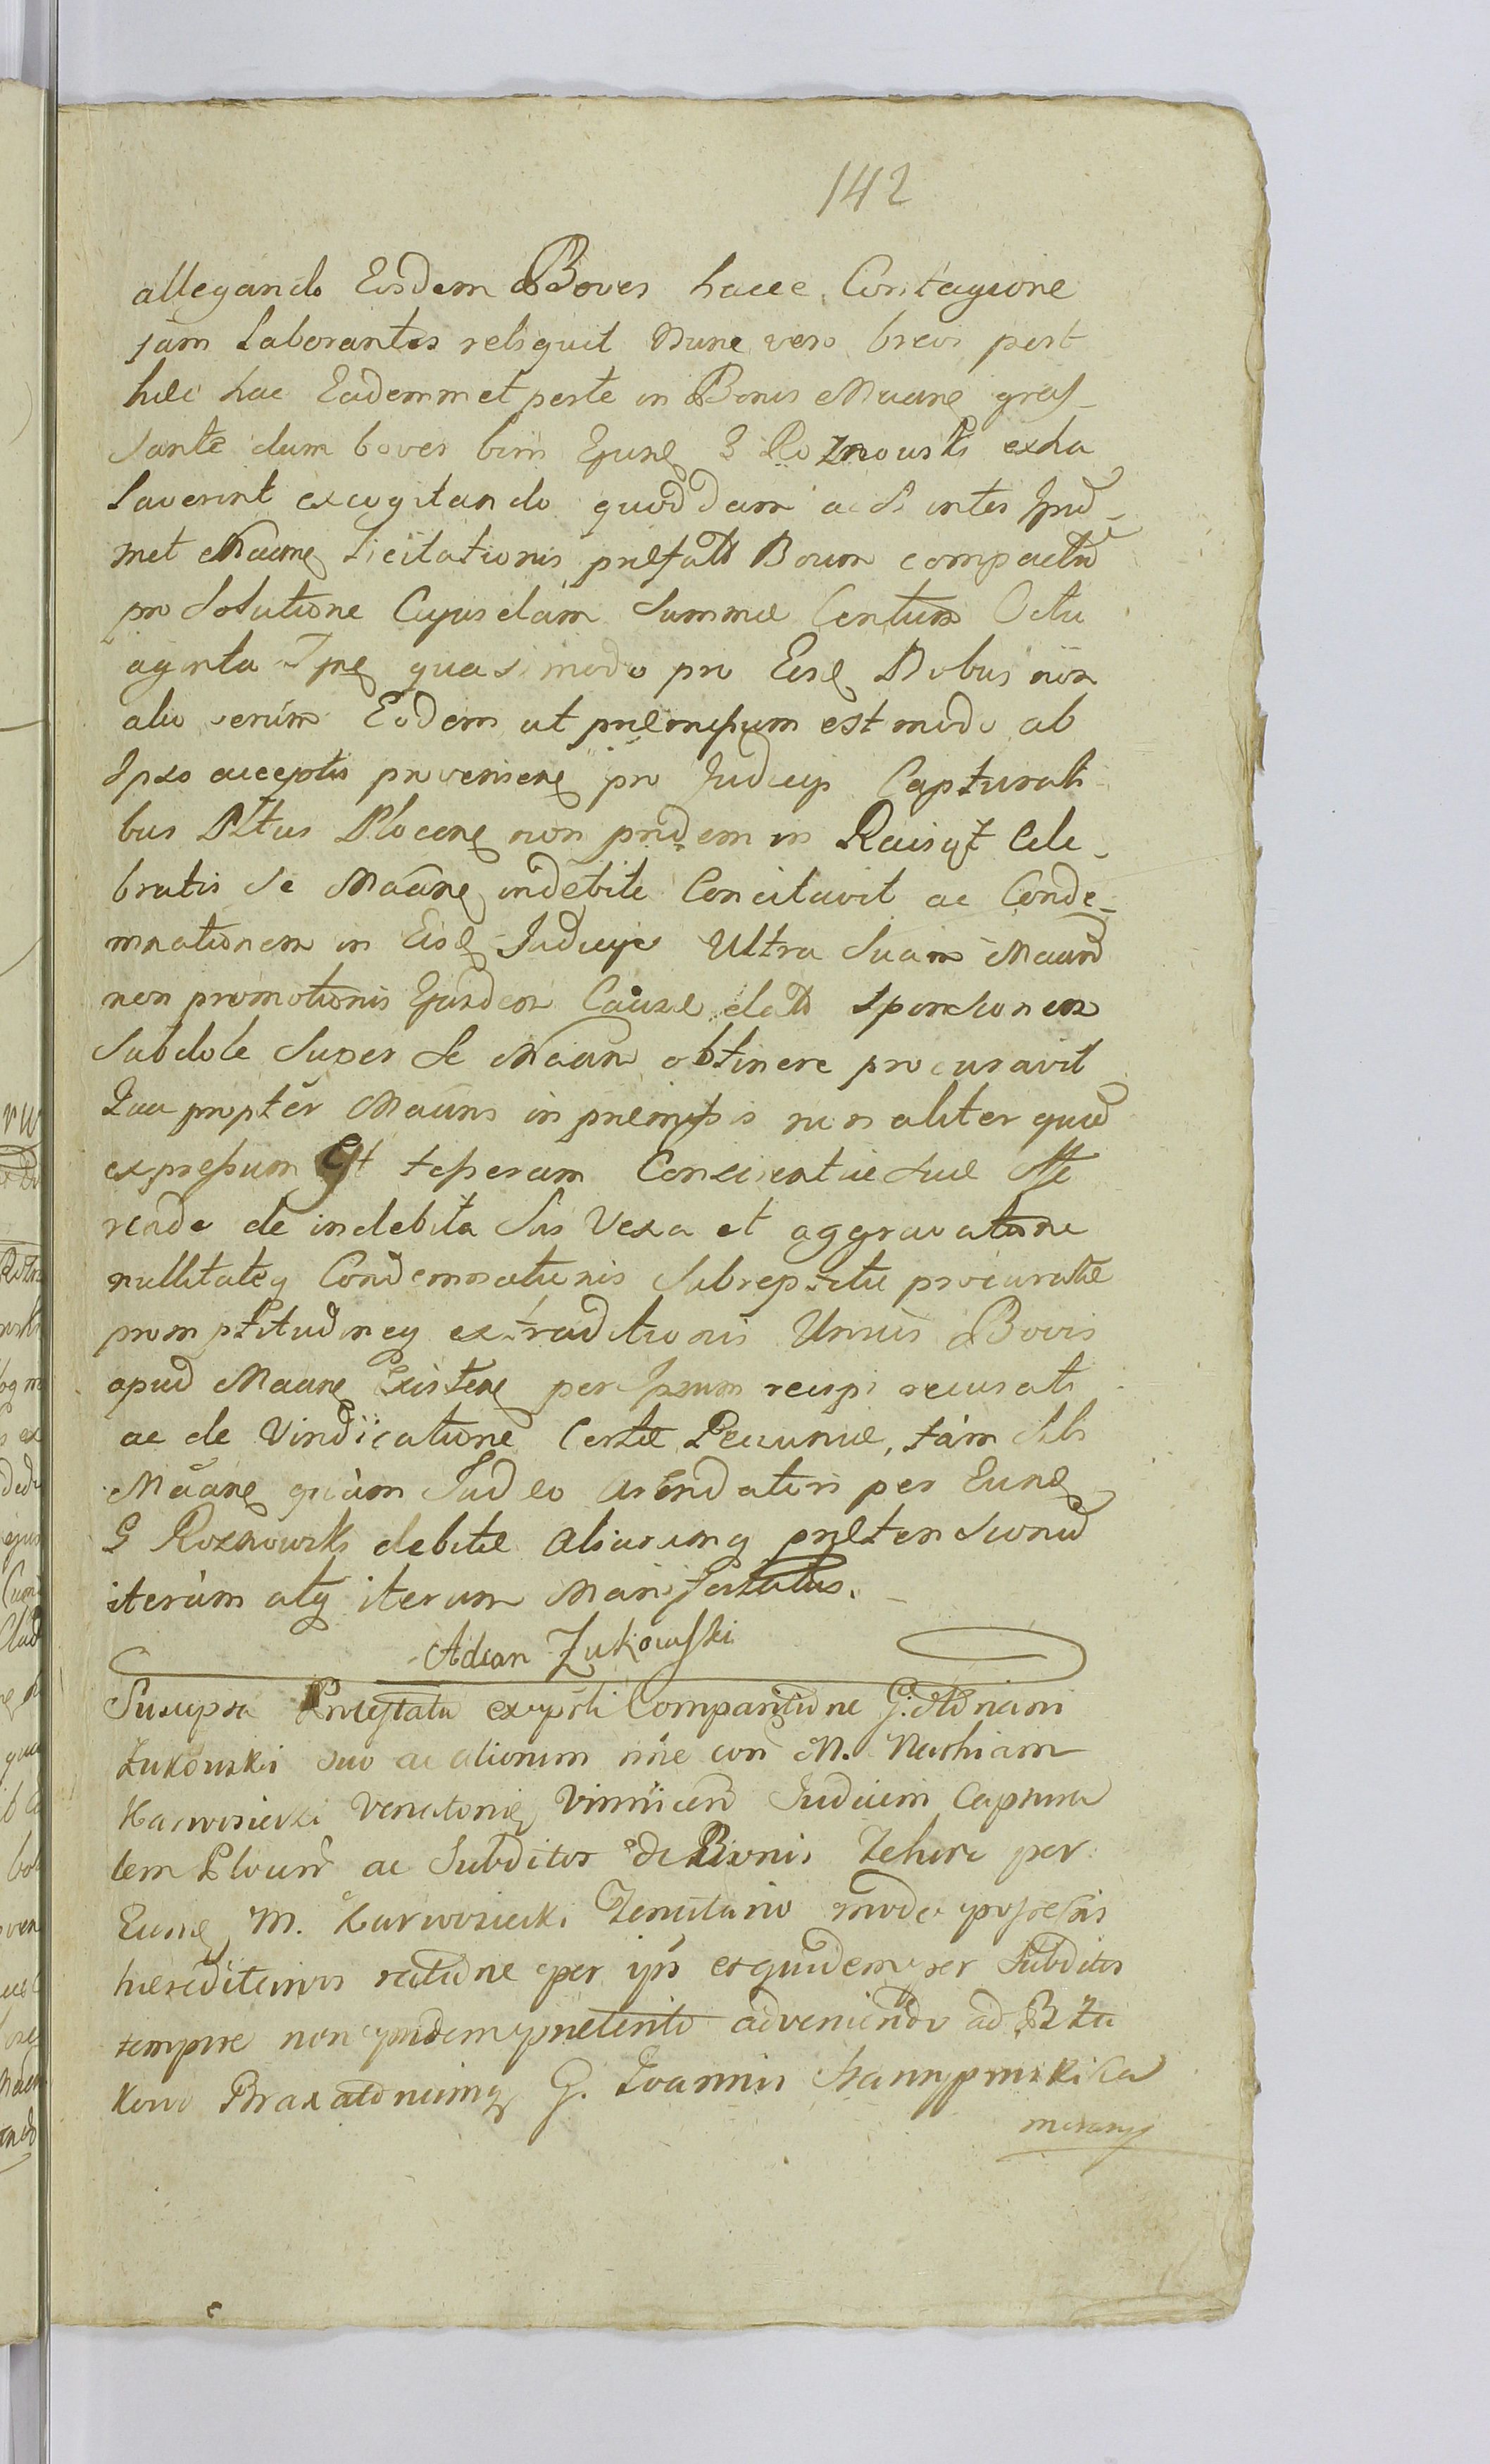 142
allegando Eosdem Boves hacce Contagione
jam Laborantes reliquit Nunc vero brevi post
hæc hac Eademmet peste in Bonis Maãne gras-
sante dum boves bini Ejusd G Roznowski exha
laverint excogitando quoddam ac si inter Ipsū-
met Maãne Licitationis præfatt Boum compactū
pro Solutione Cujusdam Summæ Centum Octu
aginta Tpf quasi modo pro Eisd Bobus non
alio verùm Eodem ut præmissum est modo ab
Ipso acceptis provenien pro Judicijs Captorali-
bus Pltus Plocen non pridem in Raciąż Cele-
bratis Se Maãne indebite Concitavit ac Conde-
mnationem in Eisd Judicijs Ultra Suam Maan
non promotionis Ejusdem Causæ datt Sponsionem
Subdole Super Se Maan obtinere procuravit
Qua proptèr Maans in præmissis non aliter quā
expressum Est teperam Conscientiæ Suæ
reinde de indebita Sui Vexa et aggravatione
nullitateq Condemnationis Subreptitie procuratæ
promptitudineq extraditionis Unius Bovis
apud Maane Existen per Ipsum recipi recusati
ac de Vindicatione Certæ Pecuniæ, tàm Sibi
Maãne quàm Judeo arendatori per Eund
G Roznowski debitæ aliarumq prætensionū
iterùm atq iterum Manifestatus.
Adrian Zukowski
Suscepta Protestatu ex pŕti Comparitione G. Adriani
Zukowski suo ac aliorum nńe con M. Mathiam
Karwosiecki Venatorie Vinnicen Judicem Captura
lem Plocen ac Subditos de Bonis per
Eund M. Karwosiecki Tenutario modo possessis
hæreditarios ratione per ips et quidem per Subditos
tempore non pridem præterito adveniendo ad B Zu
kowo Braxatoriumq G. Joannis Ca
merarij